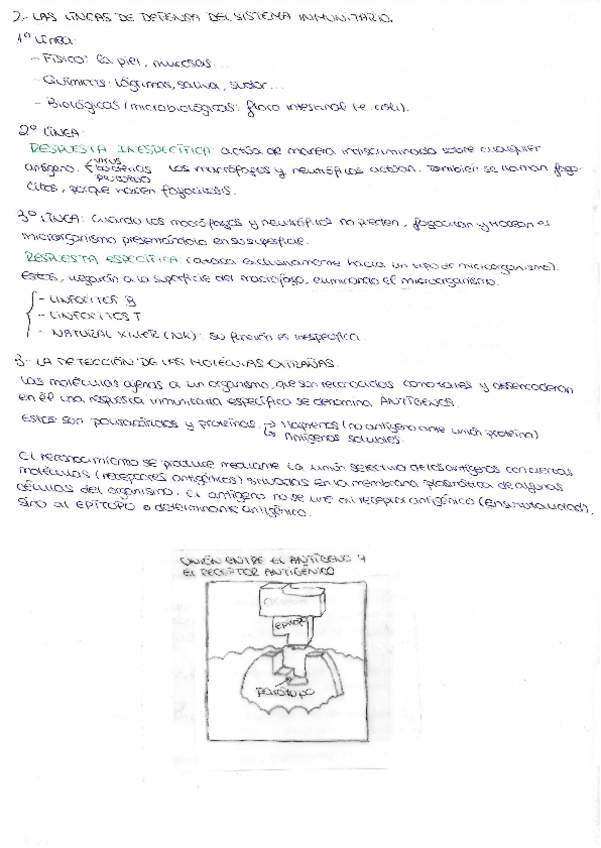 2.- LAS LÍNEAS DE DEFENSA DEL SISTEMA INMUNITARIO.
1º LÍNEA:
- Físico: la piel, mucosas...
- Químicas: lágrimas, saliva, sudor...
- Biológicas/microbiológicas: flora intestinal (e. coli).
2º LÍNEA:
RESPUESTA INESPECÍFICA: actúa de manera indiscriminada sobre cualquier
virus
antígeno. bacterias Los macrófagos y neutrófilos actúan. También se llaman fago-
citos, porque hacen fagocitosis.
3º LÍNEA: Cuando los macrófagos y neutrófilos no pueden, fagocitan y trocean el
microorganismo presentándolo en su superficie.
RESPUESTA ESPECÍFICA: (ataca exclusivamente hacia un tipo de microorganismo).
Estos, llegarán a la superficie del macrófago, eliminando el microorganismo.
- LINFOCITOS B
- LINFOCITOS T
- NATURAL KILLER (NK): su función es inespecífica.
3.- LA DETECCIÓN DE LAS MOLÉCULAS EXTRAÑAS.
Las moléculas ajenas a un organismo, que son reconocidas como tales y desencadenan
en él una respuesta inmunitaria específica se denomina ANTÍGENOS.
Estos son polisacáridos y proteínas. → Haptenos (no antígeno ante unión proteína)
→ Antígenos solubles.
El reconocimiento se produce mediante la unión selectiva de los antígenos con ciertas
moléculas (receptores antigénicos) situadas en la membrana plasmática de algunas
células del organismo. El antígeno no se une al receptor antigénico (en su totalidad),
sino al EPÍTOPO o determinante antigénico.
UNIÓN ENTRE EL ANTÍGENO Y
EL RECEPTOR ANTIGÉNICO
EPÍTOPO
parátopo